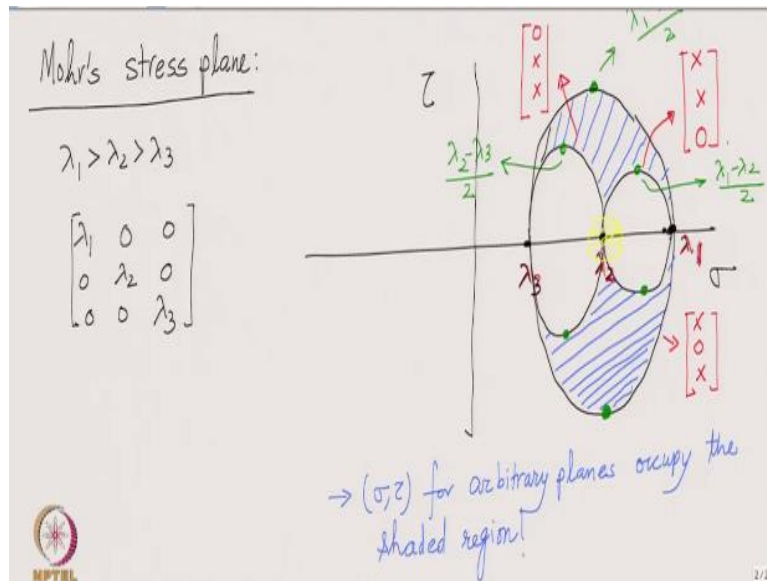 Mohr's stress plane:
λ₁ > λ₂ > λ₃
[λ₁ 0 0
0 λ₂ 0
0 0 λ₃]
τ
[0
x
x]
[x
x
0]
λ₂-λ₃
2
2
λ₁-λ₂
2
λ₃
λ₂
λ₁
σ
[x
0
x]
→ (σ,τ) for arbitrary planes occupy the
shaded region!
NPTEL